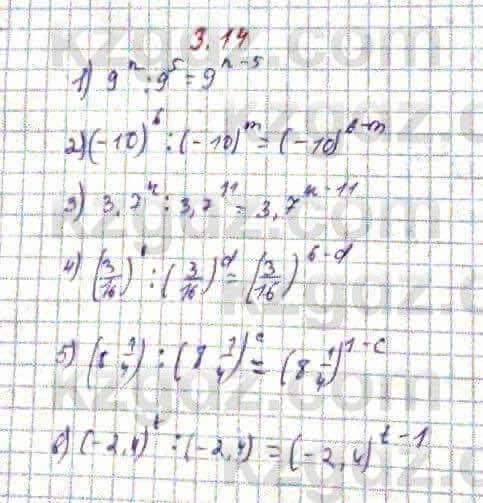 3.14
1) 9^n : 9^5 = 9^{n-5}
2) (-10)^6 : (-10)^m = (-10)^{6-m}
3) 3,7^k : 3,7^11 = 3,7^{k-11}
4) (3/16)^6 : (3/16)^d = (3/16)^{6-d}
5) (8 1/4) : (8 1/4)^c = (8 1/4)^{1-c}
6) (-2,4)^t : (-2,4) = (-2,4)^{t-1}
kzgdz.com